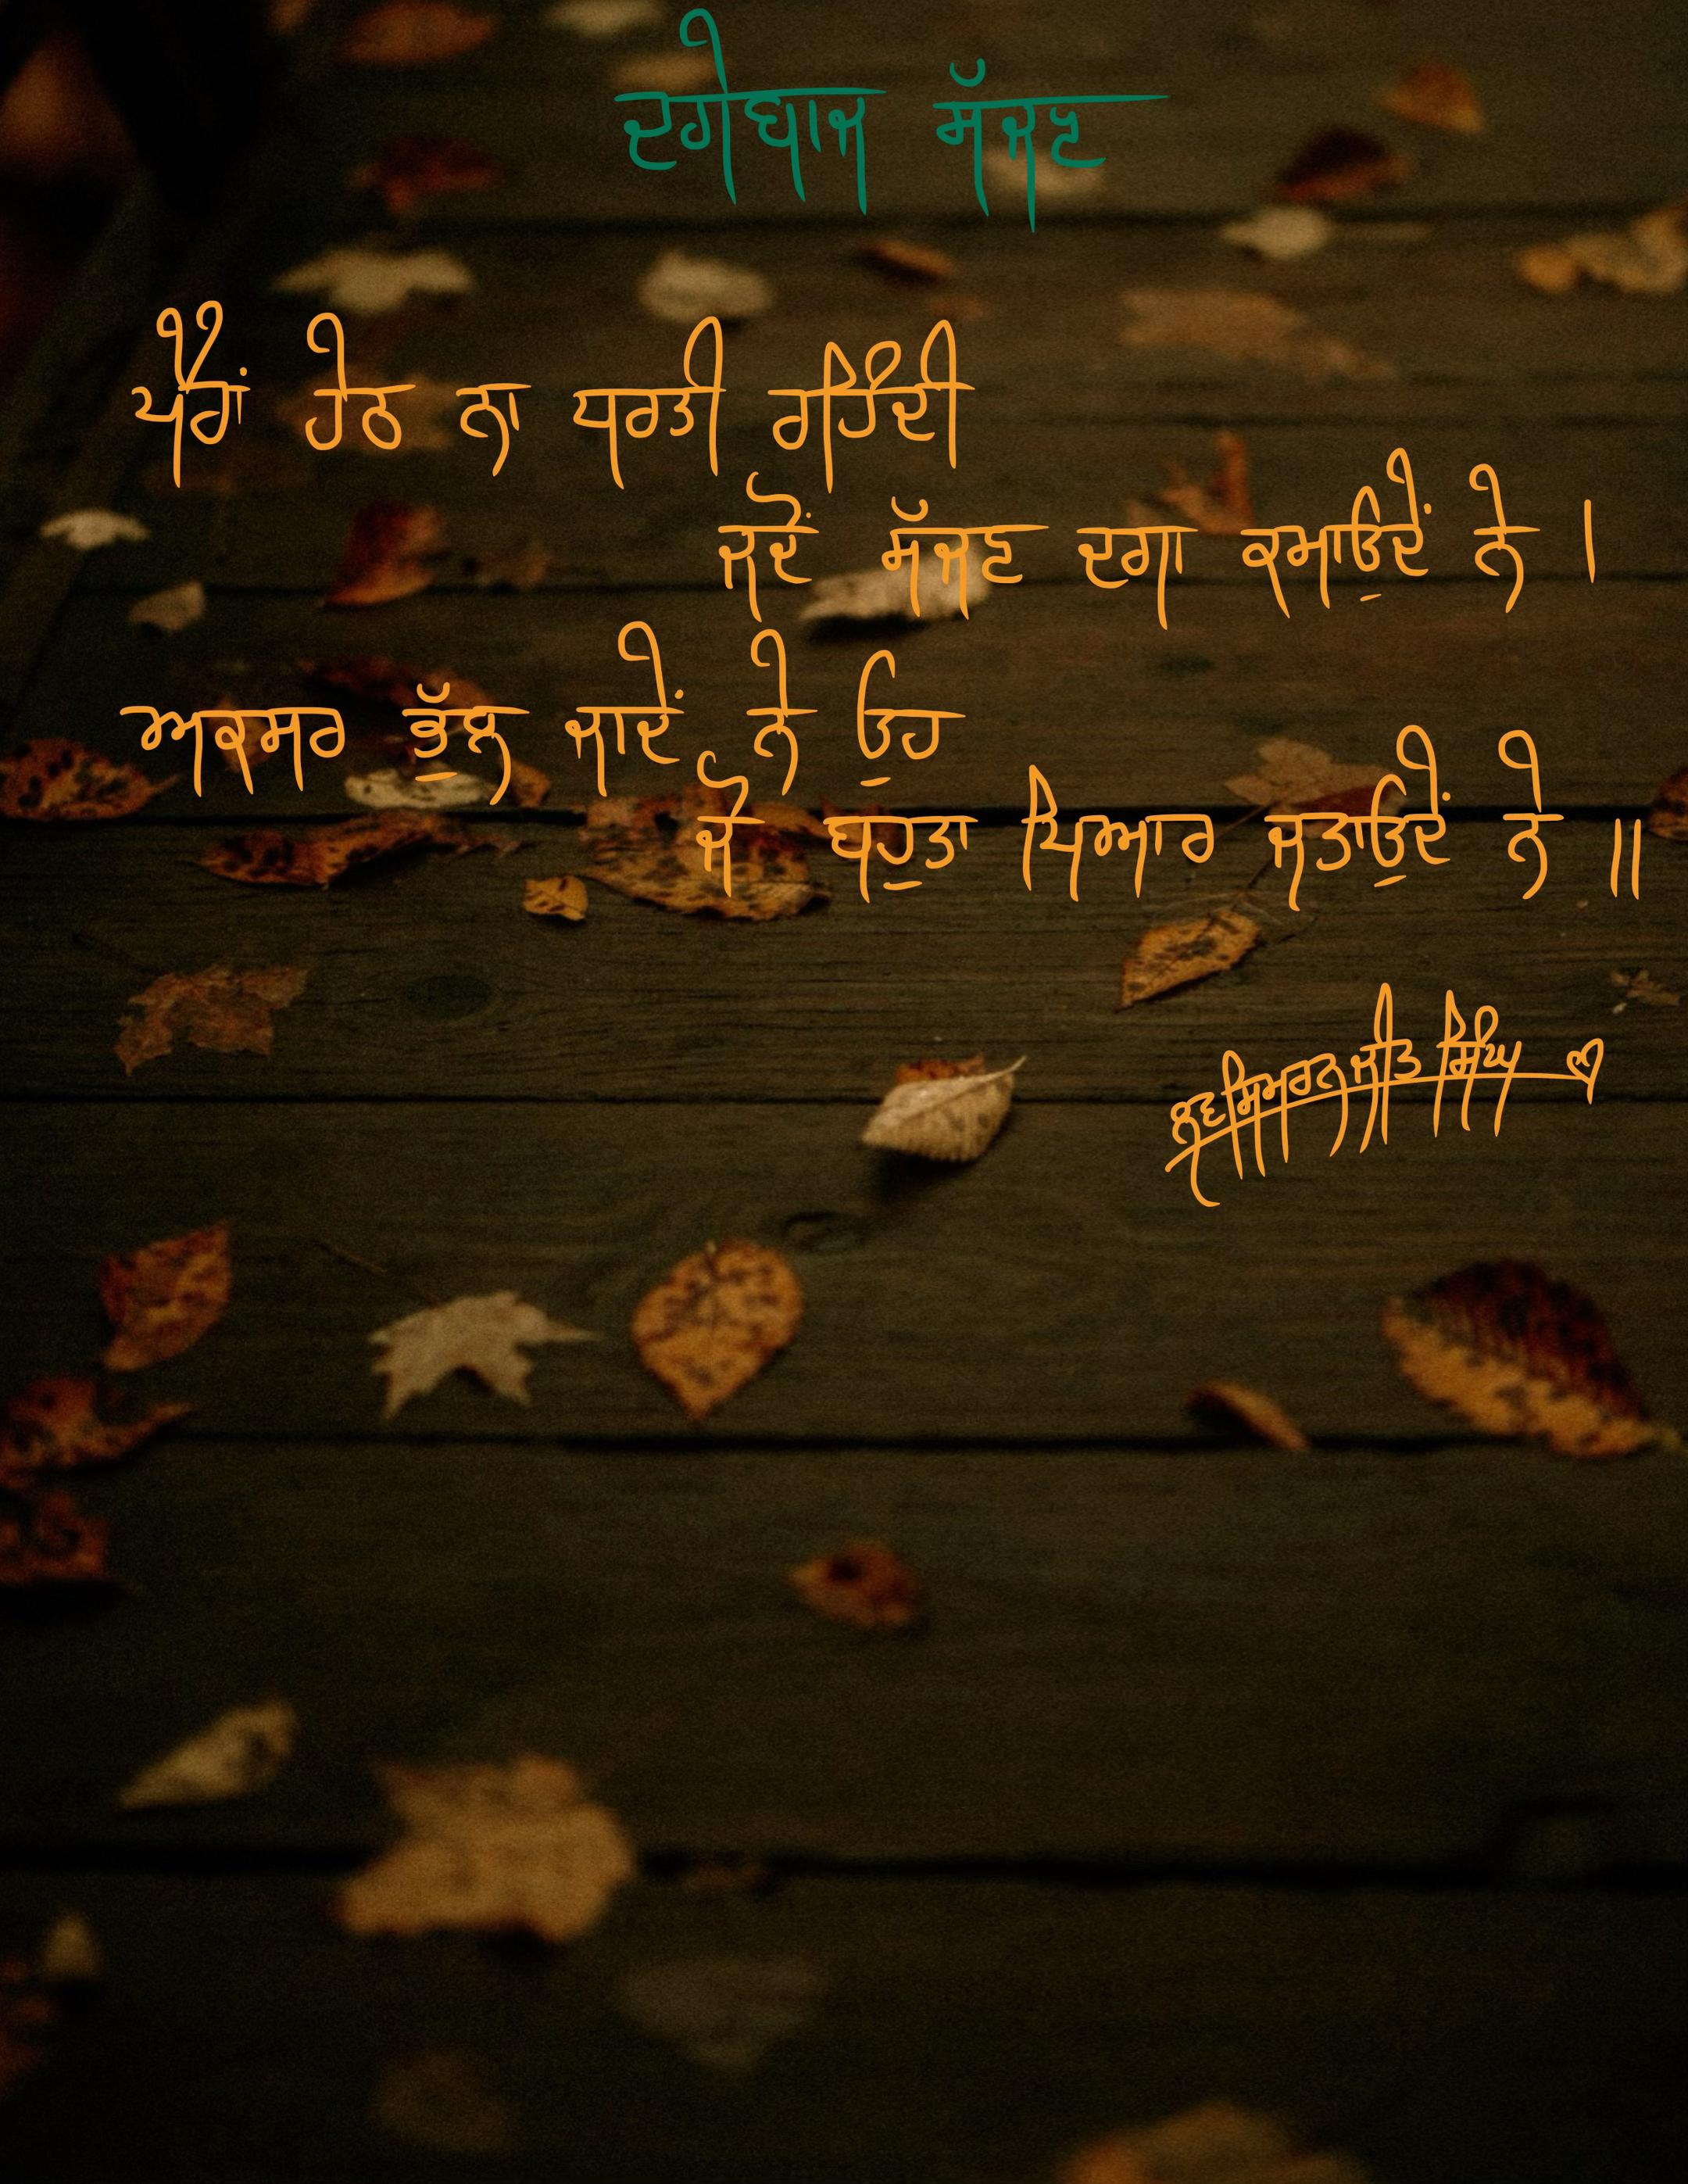 ਦਗੇਬਾਜ ਸੱਜਣ
ਪੈਰਾਂ ਹੇਠ ਨਾ ਧਰਤੀ ਰਹਿੰਦੀ
ਜਦੋਂ ਸੱਜਣ ਦਗਾ ਕਮਾਉਦੇਂ ਨੇ ।
ਅਕਸਰ ਭੁੱਲ ਜਾਦੇਂ ਨੇ ਉਹ
ਜੋ ਬਹੁਤਾ ਪਿਆਰ ਜਤਾਉਦੇਂ ਨੇ ॥
ਲਵਸਿਮਰਨਜੀਤ ਸਿੰਘ